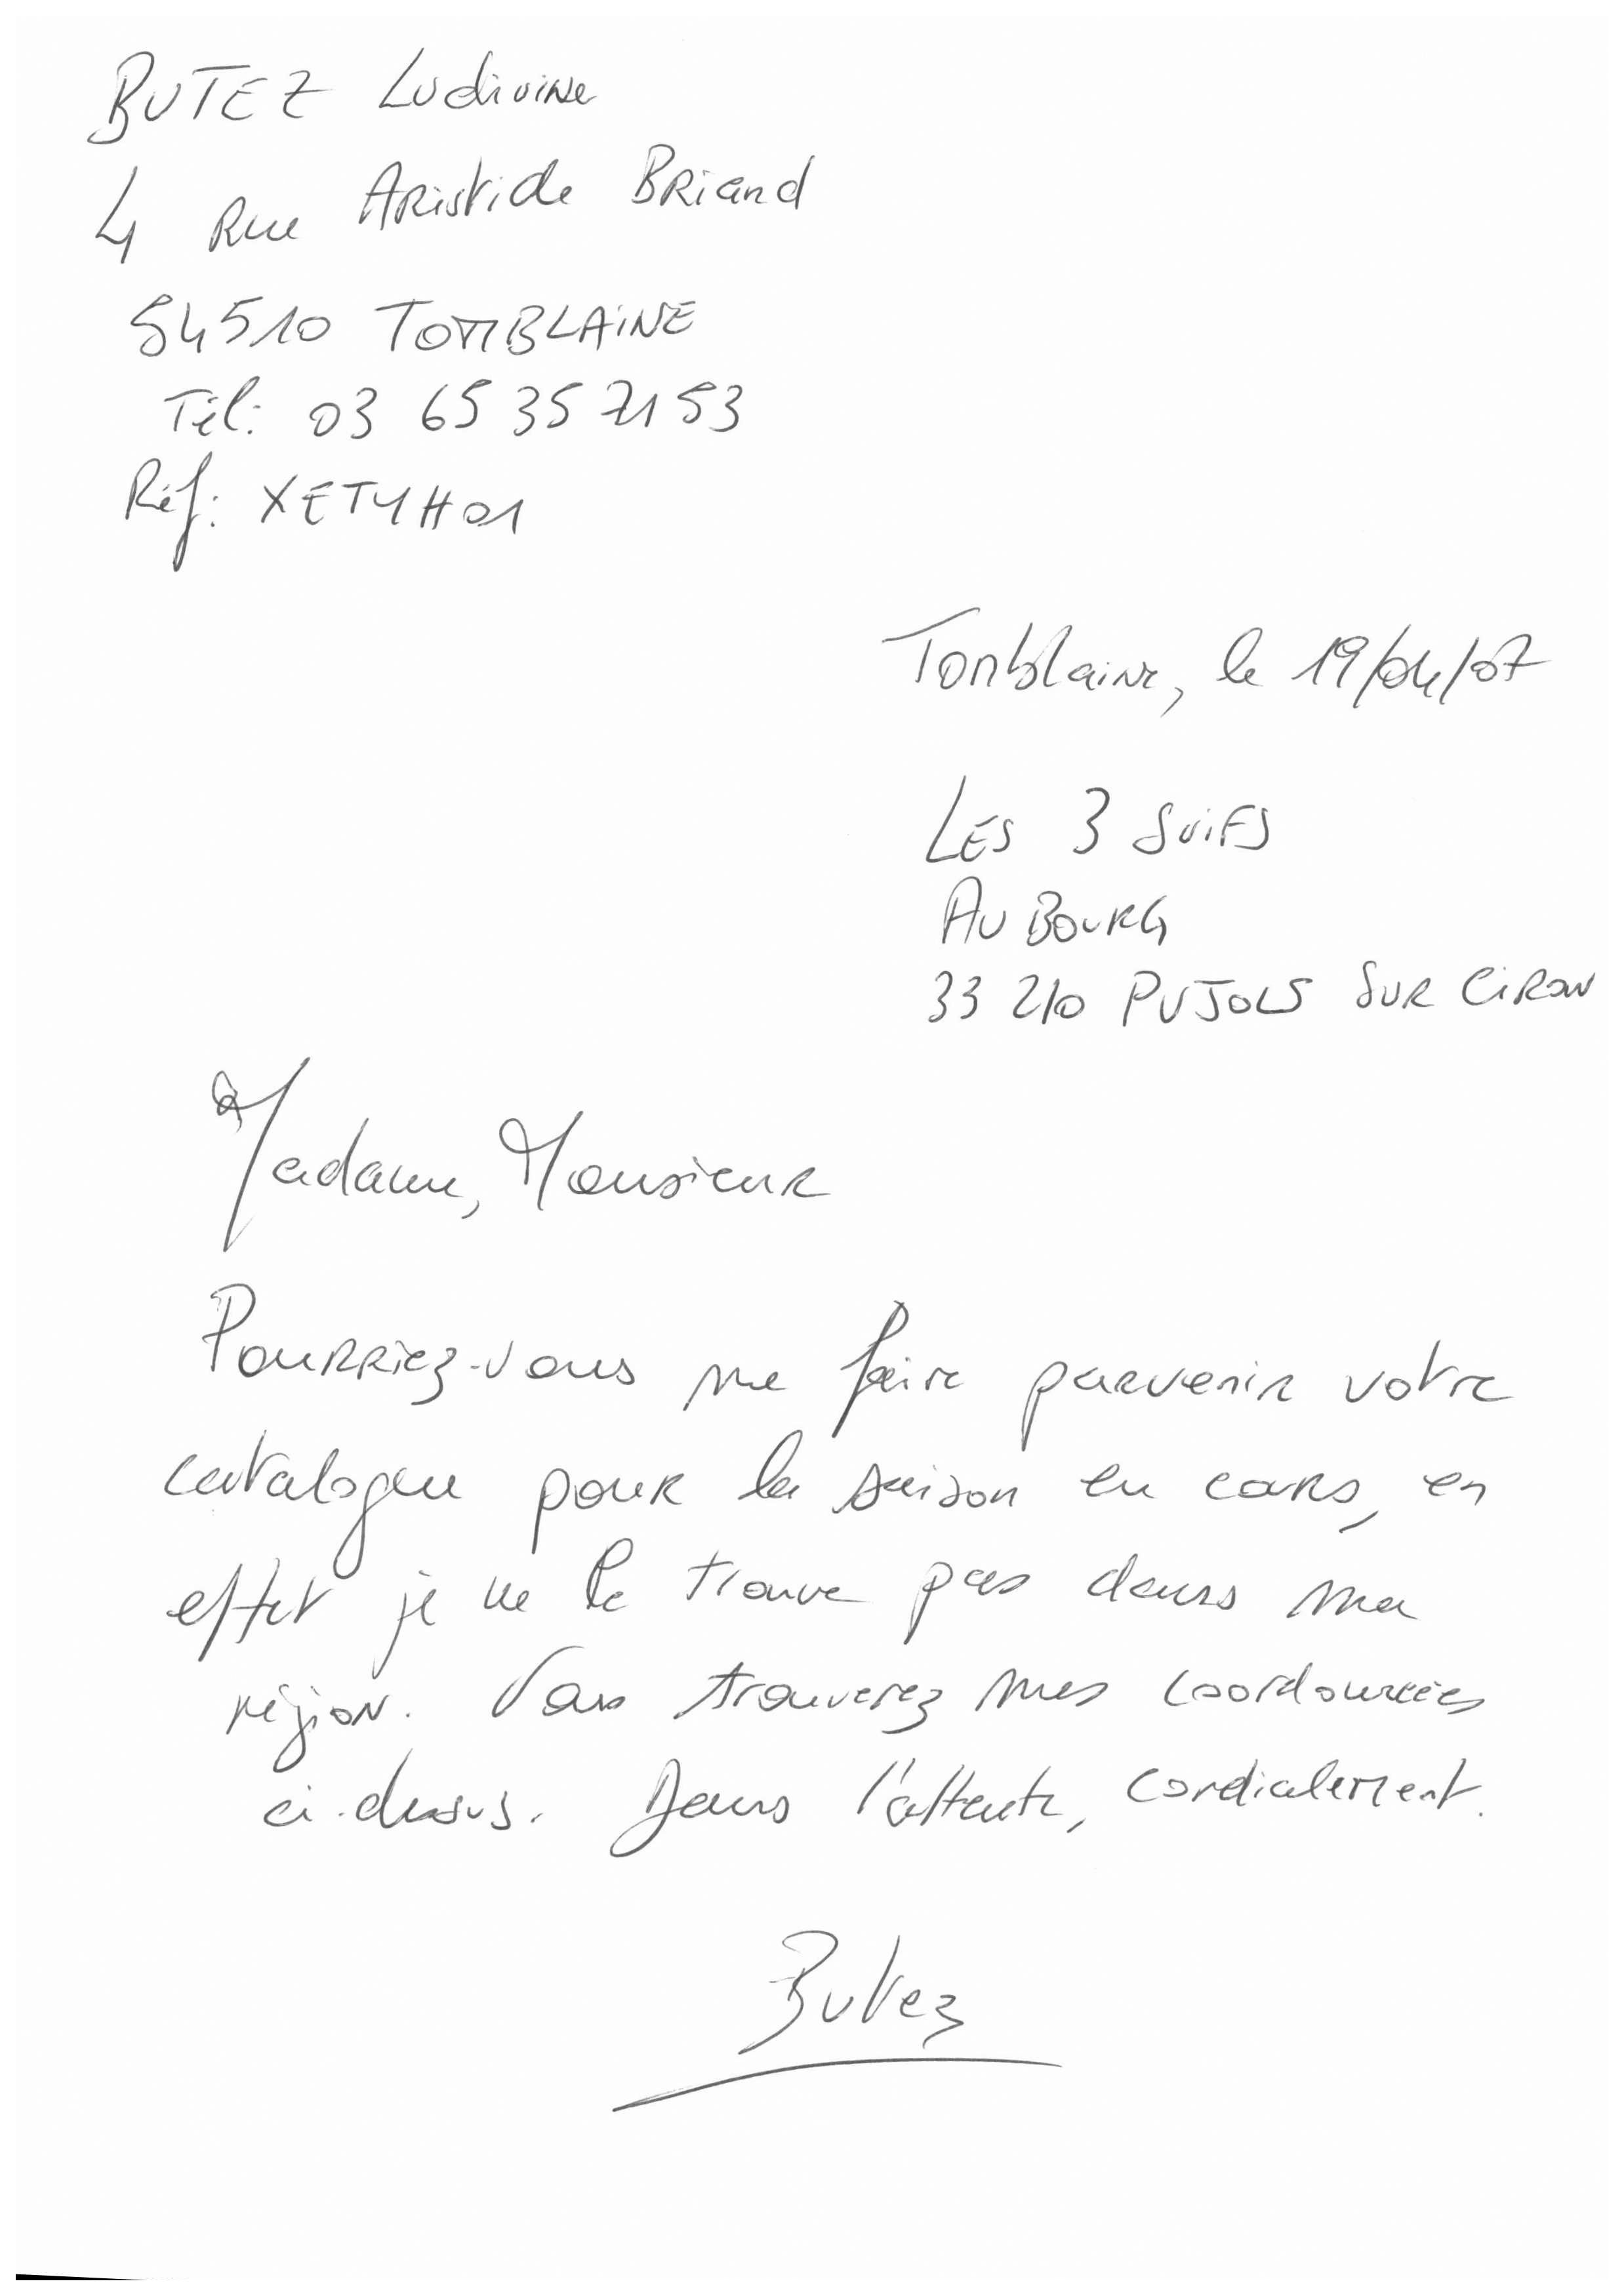 BUTEZ Ludivine
4 Rue Aristide Briand
54510 TOMBLAINE
Tél: 03 65 35 71 53
Réf: XETYH01
Tonblaine, le 19/04/07
LES 3 SUIFS
AU BOURG
33 210 PUJOLS SUR CIRON
Madame, Monsieur
Pourriez-vous me faire parvenir votre
catalogue pour la saison en cours, en
effet je ne le trouve pas dans ma
région. Vous trouverez mes coordonnées
ci-dessus. Dans l'attente, cordialement.
Butez